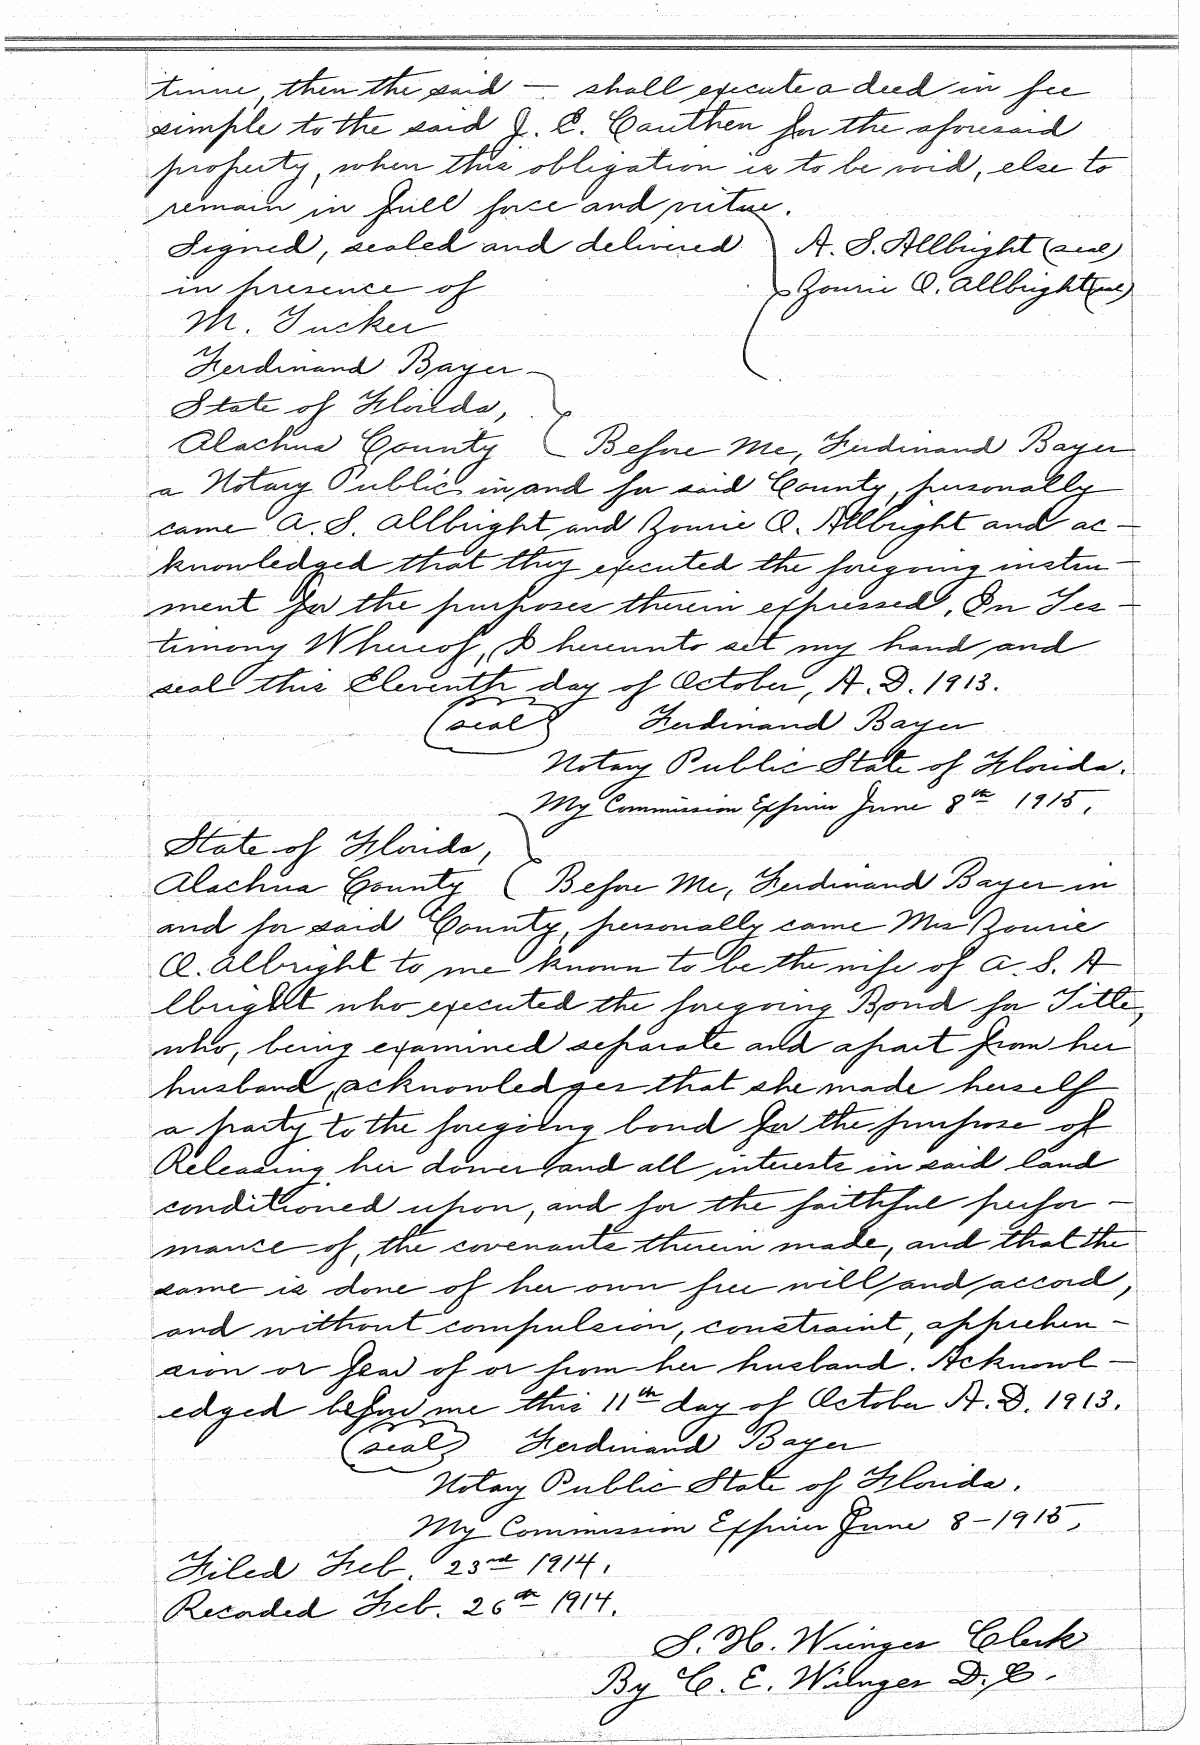 time, then the said — shall execute a deed in fee
simple to the said J. E. Cauthen for the aforesaid
property, when this obligation is to be void, else to
remain in full force and virtue.
Signed, sealed and delivered A. S. Allbright (seal)
in presence of Zourie O. Allbright (seal)
M. Tucker
Ferdinand Bayer
State of Florida,
Alachua County Before Me, Ferdinand Bayer
a Notary Public in and for said County, personally
came A. S. Allbright and Zourie O. Allbright and ac-
knowledged that they executed the foregoing instru-
ment for the purposes therein expressed. In Tes-
timony Whereof, I hereunto set my hand and
seal this Eleventh day of October, A. D. 1913.
(seal) Ferdinand Bayer
Notary Public State of Florida.
My Commission Expires June 8th 1915.
State of Florida,
Alachua County Before Me, Ferdinand Bayer in
and for said County, personally came Mrs Zourie
O. Albright to me known to be the wife of A. S. A
lbright who executed the foregoing Bond for Title,
who, being examined separate and apart from her
husband, acknowledges that she made herself
a party to the foregoing bond for the purpose of
Releasing her dower and all interests in said land
conditioned upon, and for the faithful perfor-
mance of, the covenants therein made, and that the
same is done of her own free will and accord,
and without compulsion, constraint, apprehen-
sion or fear of or from her husband. Acknowl-
edged before me this 11th day of October A. D. 1913.
(seal) Ferdinand Bayer
Notary Public State of Florida.
My Commission Expires June 8-1915.
Filed Feb. 23rd 1914.
Recorded Feb. 26th 1914.
S. H. Wienges Clerk
By C. E. Wienges D. C.